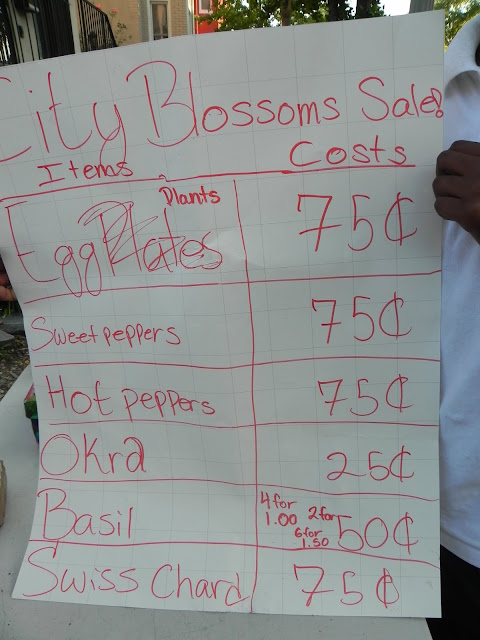 City Blossoms Sale!
Items Costs
Plants
Egg 75¢
Sweet peppers 75¢
Hot peppers 75¢
Okra 25¢
Basil 4 for 1.00 2 for 50¢
6 for 1.50
Swiss Chard 75¢